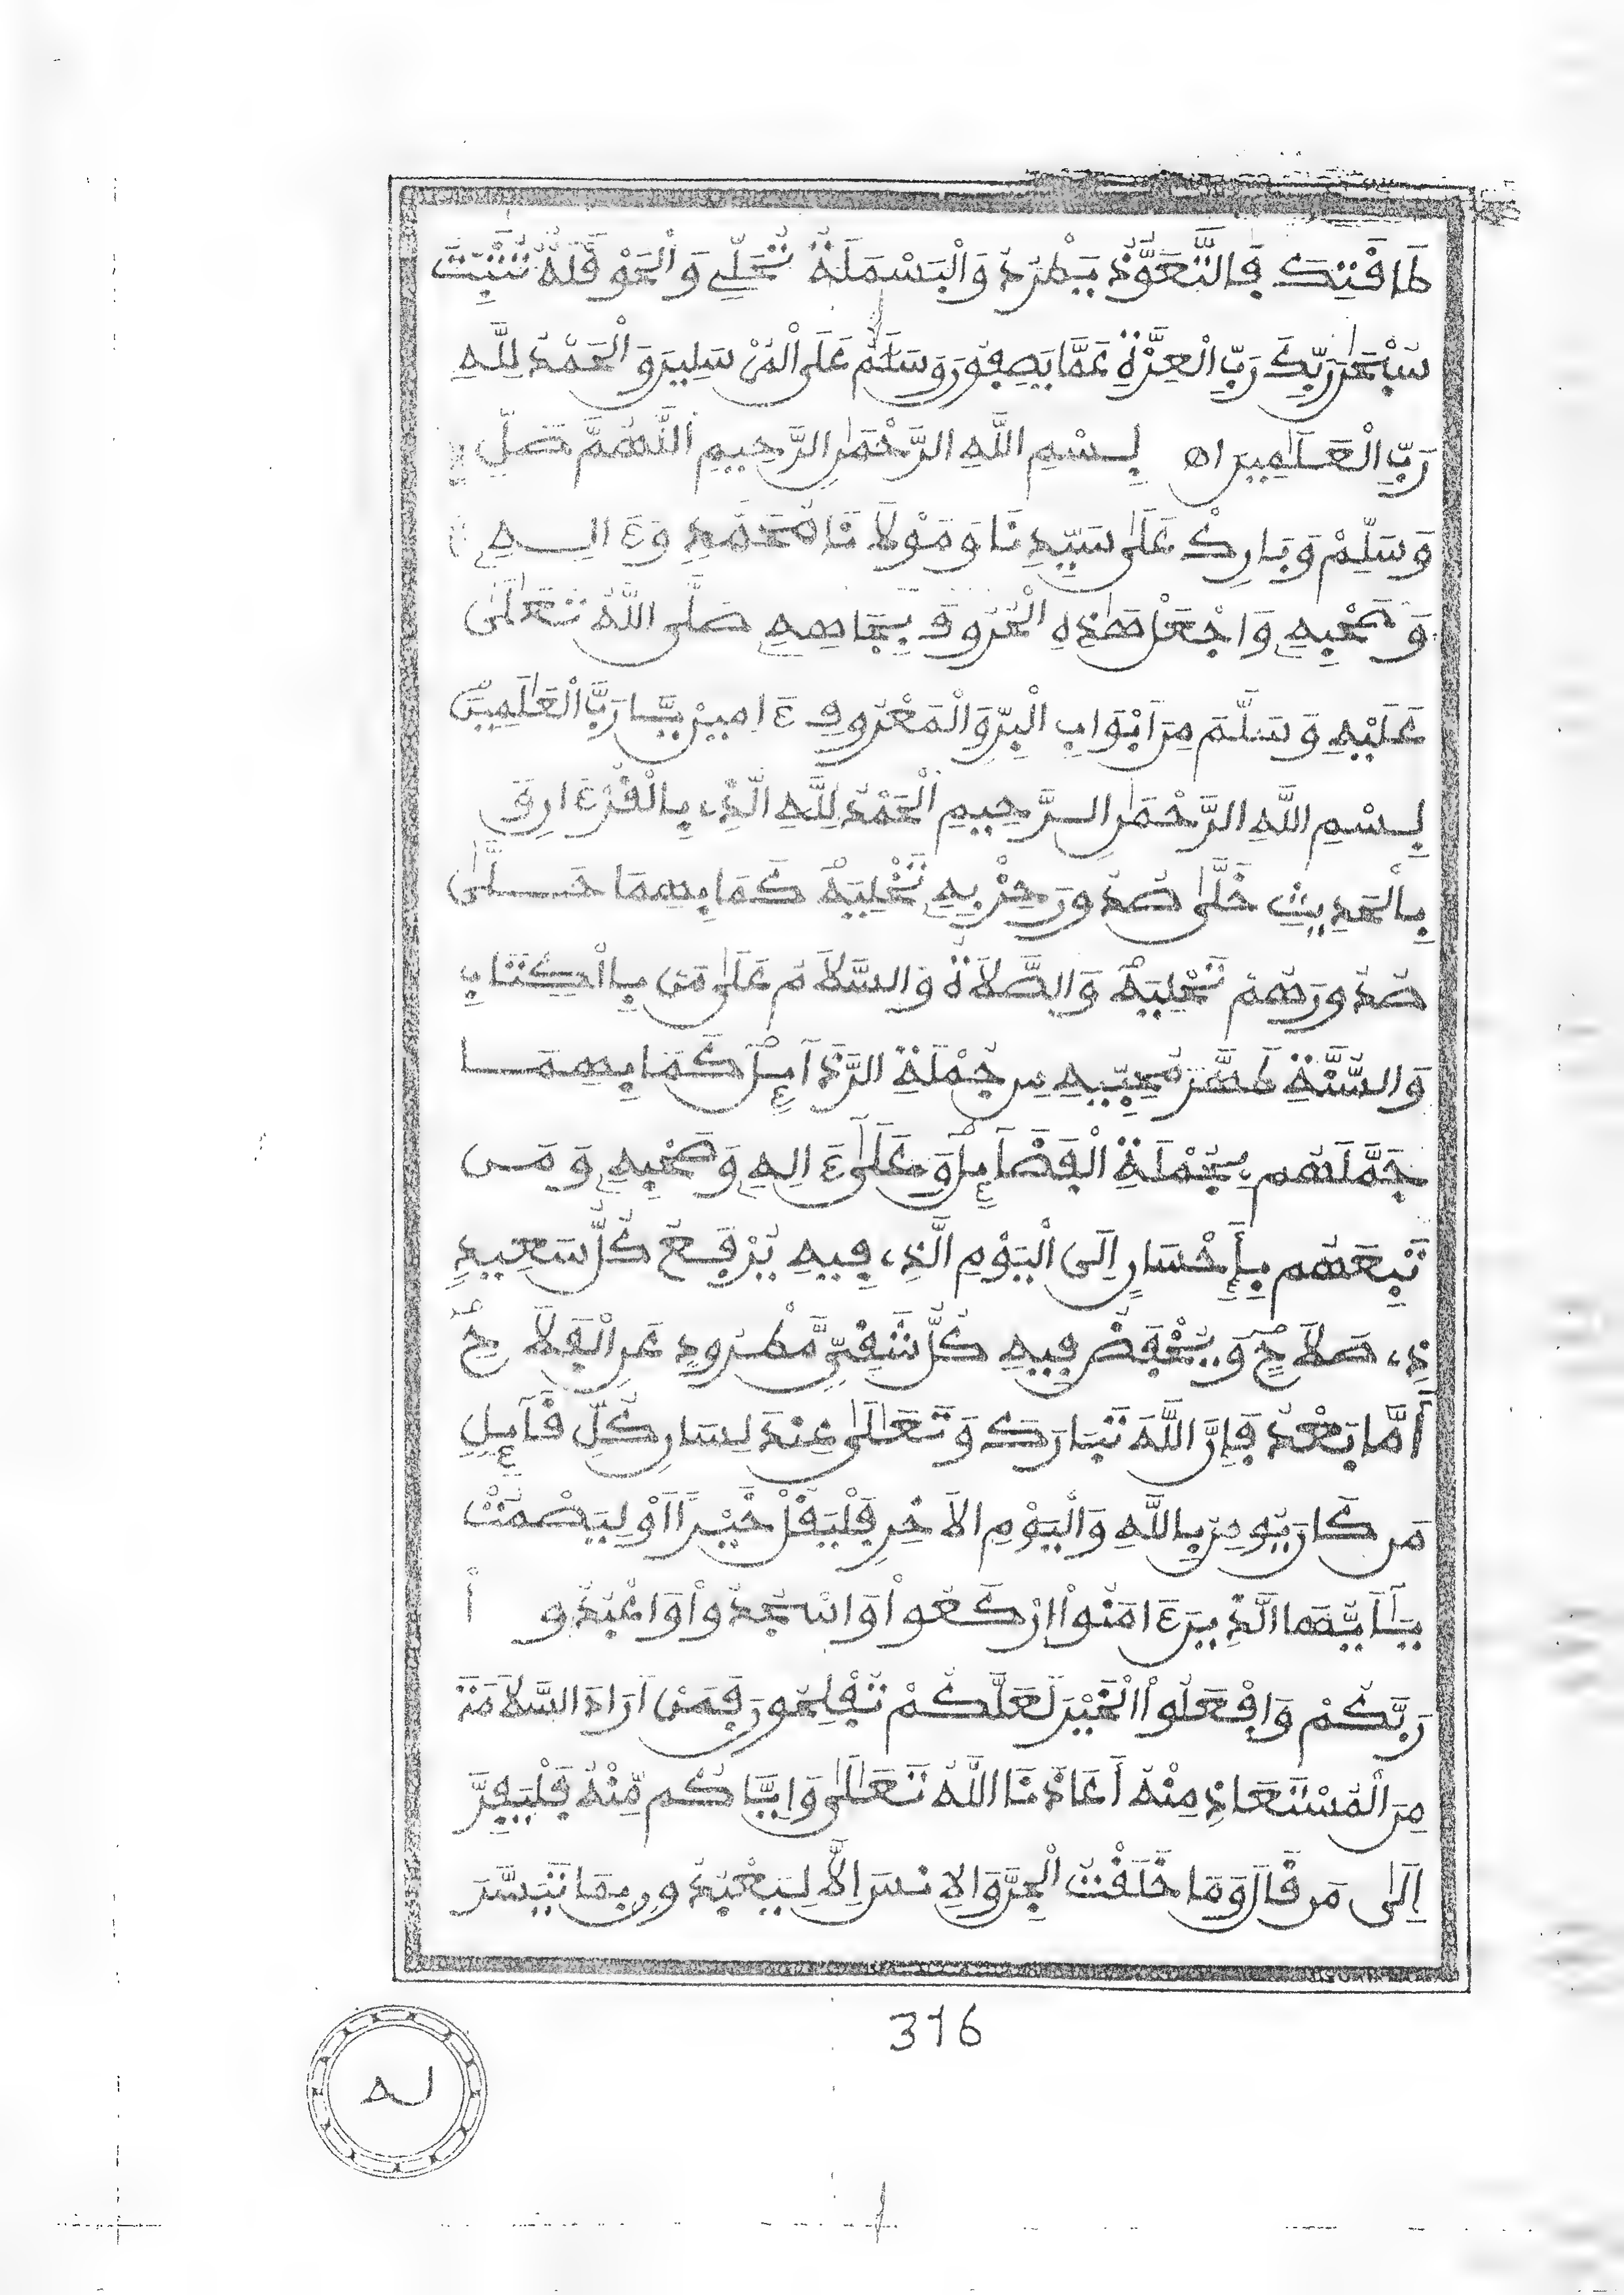 طَاقَتِكَ فَالتَّعَوُّذُ يَطْرُدُ وَالْبَسْمَلَةُ تُحَلِّي وَالْحَوْقَلَةُ تُثَبِّتُ
سُبْحَٰنَ رَبِّكَ رَبِّ الْعِزَّةِ عَمَّا يَصِفُونَ وَسَلَٰمٌ عَلَى الْمُرْسَلِينَ وَالْحَمْدُ لِلَّهِ
رَبِّ الْعَٰلَمِينَ اه بِسْمِ اللَّهِ الرَّحْمَٰنِ الرَّحِيمِ اللَّهُمَّ صَلِّ
وَسَلِّمْ وَبَارِكْ عَلَىٰ سَيِّدِنَا وَمَوْلَانَا مُحَمَّدٍ وَءَالِهِ
وَصَحْبِهِ وَاجْعَلْ هَٰذِهِ الْحُرُوفَ بِجَاهِهِ صَلَّى اللَّهُ تَعَالَىٰ
عَلَيْهِ وَسَلَّمَ مِنَ اَبْوَابِ الْبِرِّ وَالْمَعْرُوفِ ءَامِينَ يَا رَبَّ الْعَٰلَمِينَ
بِسْمِ اللَّهِ الرَّحْمَٰنِ الرَّحِيمِ الْحَمْدُ لِلَّهِ الَّذِي بِالْقُرْءَانِ وَ
بِالْحَدِيثِ خَلَّىٰ صُدُورَ حِزْبِهِ تَخْلِيَةً كَمَا بِهِمَا حَلَّىٰ
صُدُورَهُمْ تَحْلِيَةً وَالصَّلَاةُ وَالسَّلَامُ عَلَىٰ مَن بِالْكِتَابِ
وَالسُّنَّةِ طَهَّرَ مُحِبِّيهِ مِن جُمْلَةِ الرَّذَآئِلِ كَمَا بِهِمَا
جَمَّلَهُم بِجُمْلَةِ الْفَضَآئِلِ وَعَلَىٰ ءَالِهِ وَصَحْبِهِ وَمَن
تَبِعَهُم بِإِحْسَانٍ اِلَى الْيَوْمِ الَّذِي فِيهِ يُرْفَعُ كُلُّ سَعِيدٍ
ذِي صَلَاحٍ وَيُخْفَضُ فِيهِ كُلُّ شَقِيٍّ مَّطْرُودٍ عَنِ الْفَلَاحِ
أَمَّا بَعْدُ فَإِنَّ اللَّهَ تَبَارَكَ وَتَعَالَىٰ عِنْدَ لِسَانِ كُلِّ قَآئِلٍ
مَن كَانَ يُومِنُ بِاللَّهِ وَالْيَوْمِ الْاَخِرِ فَلْيَقُلْ خَيْراً اَوْ لِيَصْمُتْ
يَٰأَيُّهَا الَّذِينَ ءَامَنُواْ ارْكَعُواْ وَاسْجُدُواْ وَاعْبُدُواْ
رَبَّكُمْ وَافْعَلُواْ الْخَيْرَ لَعَلَّكُمْ تُفْلِحُونَ فَمَنْ اَرَادَ السَّلَامَةَ
مِنَ الْمُسْتَعَاذِ مِنْهُ أَعَاذَنَا اللَّهُ تَعَالَىٰ وَاِيَّاكُم مِّنْهُ فَلْيَفِرَّ
اِلَىٰ مَن قَالَ وَمَا خَلَقْتُ الْجِنَّ وَالاِنسَ اِلَّا لِيَعْبُدُونِ بِمَا تَيَسَّرَ
316